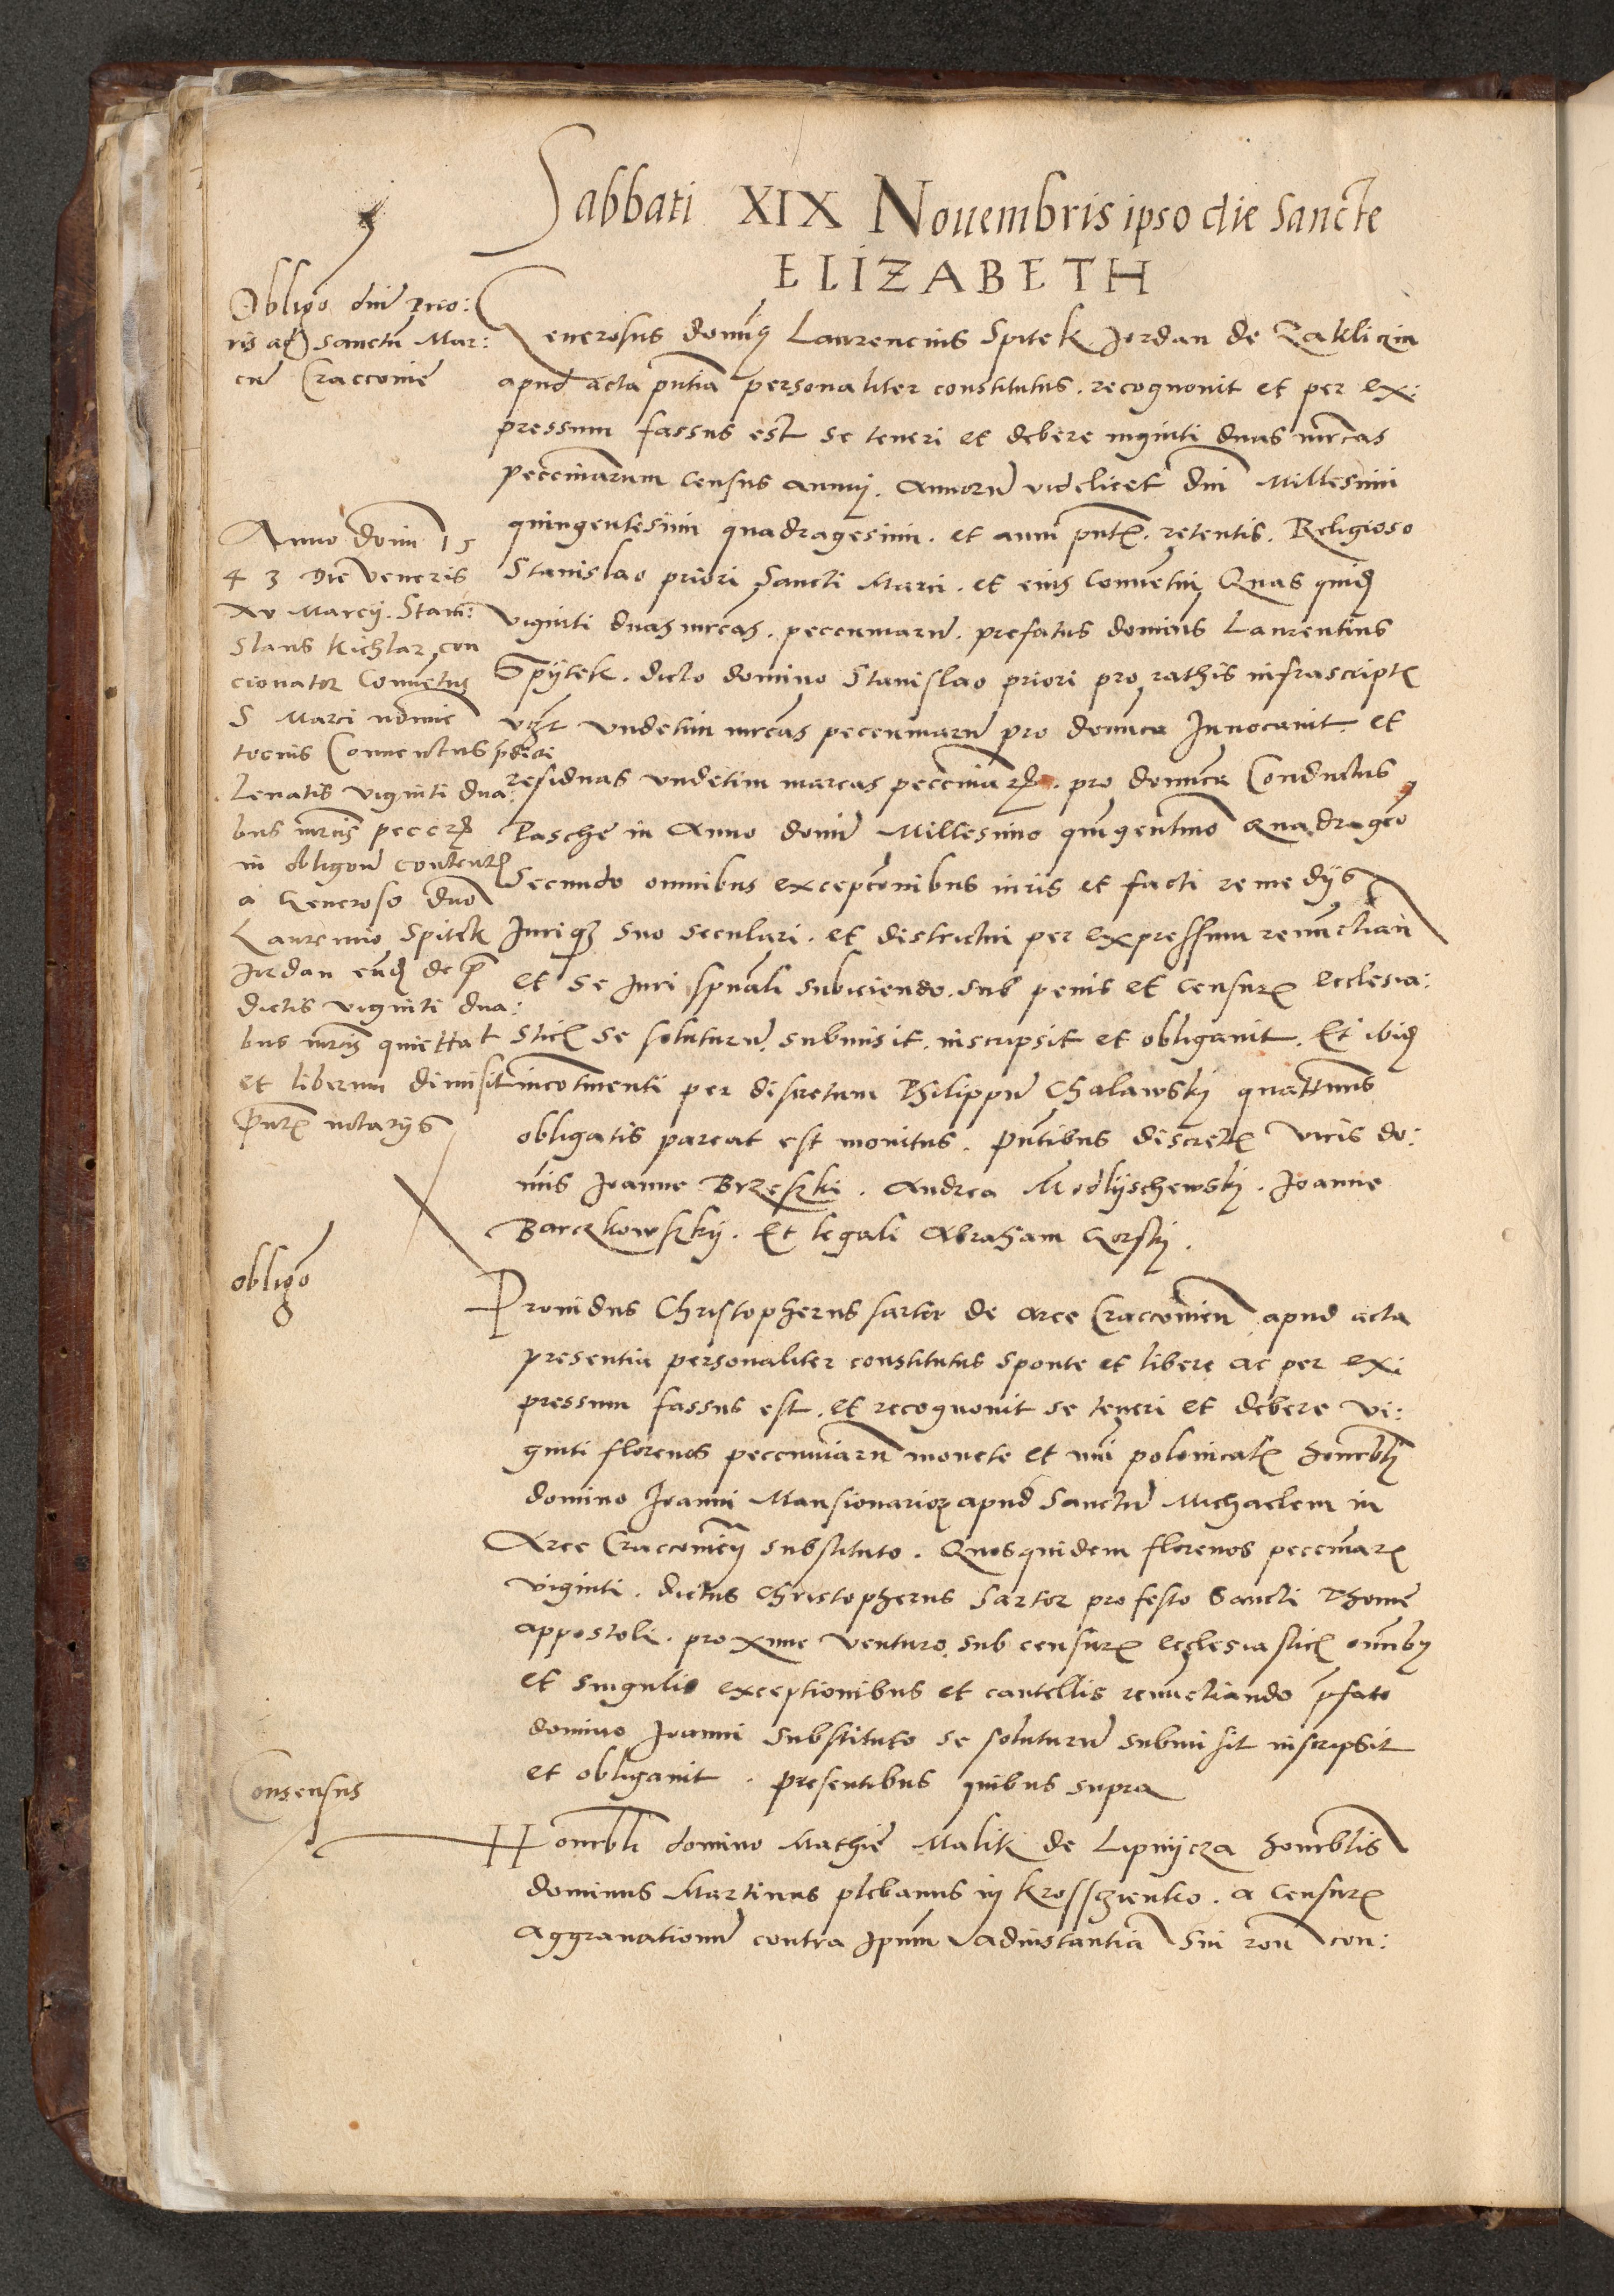 Sabbati XIX Nouembris ipso die Sancte
ELIZABETH
Obligo dni prio:
ris ad sanctu Mar:
cu Craccouie
Generosus domus Laurencius Spitek Jordan de Zakliczin
apud acta pntia personaliter constitutus . recognouit et per ex:
pressum fassus est se teneri et debere viginti duas mrcas
pecuniarum census annuj . annoru videlicet dni Millesimi
quingentesimi quadragesimi . et anni pnt . retentis . Religioso
Stanislao priori Sancti Marci . et eius Conuentui Quas quid
viginti duas mrcas . pecuniaru . prefatus dominus Laurentius
Spijtek . dicto domino Stanislao priori pro rathis infrascript
vndecim mrcas pecuniaru pro dominica Inuocauit et
residuas vndecim marcas pecuniar . pro dominica Conductus
Pasche in Anno domi Millesimo quigentmo quadrageo
Secundo omnibus excepconibus iuris et facti remedijs
Juriq suo seculari . et districtui per expressum renunctian
et se Juri spuali subiciendo . sub penis et censur ecclesia:
stic se soluturu submisit . inscripsit et obligauit . Et ibid
incotinenti per discretum Philippu Chalawskj quattinus
obligatis pareat est monitus . pntibus discret viris do:
mis Joanne Brzeski . Andrea Modlijschewskj . Joanne
Barczkowskij . Et legali Abraham Gorskj .
Anno domi 15
4 3 Die Veneris
xv Marcij . Stani:
slaus Kichlar con
cionator Conuetus
S Marci nomie
tocius Conuentus
Leuatis viginti dua:
bus mrcis pecc
in obligoe content
a Generoso dno
Laurencio Spitek
Jordan eund de p
dictis viginti dua:
bus mrcis quiettat
et liberum dimisit
pnt notarijs
obligo
Prouidus Christopherus sartor de arce Craccouien apud acta
presentia personaliter constitutus sponte et libere ac per ex:
pressum fassus est . et recognouit se teneri et debere vi:
ginti florenos pecuniaru monete et nui polonicat honcbli
domino Joanni Mansionarior apud Sanctu Michaelem in
Arce Craccouien substituto . Quosquidem florenos pecuniar
viginti . dictus Christopherus Sartor pro festo Sancti Thome
appostoli . proxime venturo sub censur ecclesiastic omib
et singulis exceptionibus et cautellis renuctiando pfato
domino Joanni substituto se soluturu submisit inscripsit
et obligauit . presentibus quibus supra
Consensus
Honcbli domino Mathie Malik de Lipnijcza honcblis
dominus Martinus plebanus in Krossczienko . a censur
aggrauationu contra ipum ad instantia Sui ron con: